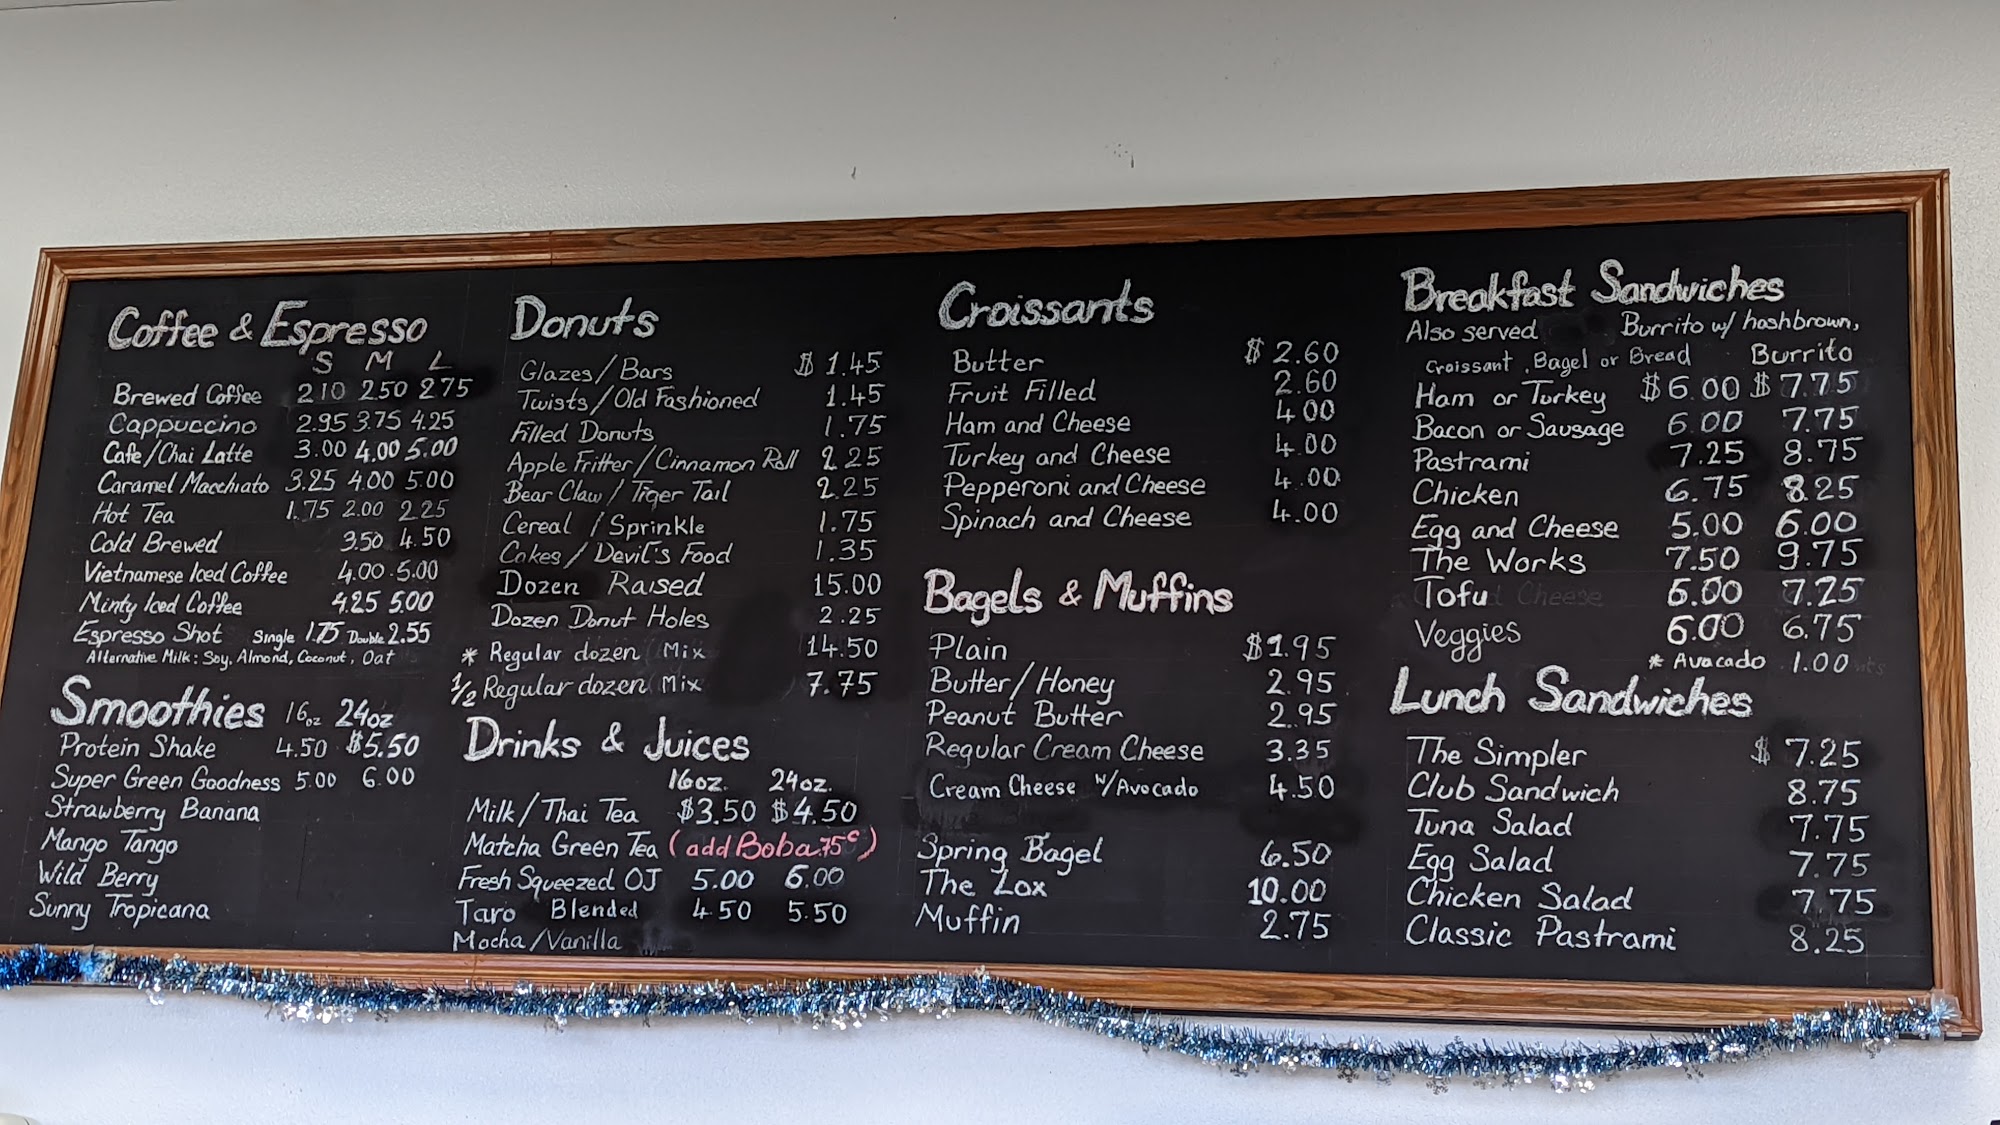 Coffee & Espresso
S M L
Brewed Coffee 2 10 2 50 2 75
Cappuccino 2.95 3.75 4.25
Cafe/Chai Latte 3.00 4.00 5.00
Caramel Macchiato 3.25 4.00 5.00
Hot Tea 1.75 2.00 2.25
Cold Brewed 3.50 4.50
Vietnamese Iced Coffee 4.00 5.00
Minty Iced Coffee 4.25 5.00
Espresso Shot Single 1.75 Double 2.55
Alternative Milk: Soy, Almond, Coconut, Oat
Smoothies 16oz 24oz
Protein Shake 4.50 $5.50
Super Green Goodness 5.00 6.00
Strawberry Banana
Mango Tango
Wild Berry
Sunny Tropicana
Donuts
Glazes/Bars $ 1.45
Twists/Old Fashioned 1.45
Filled Donuts 1.75
Apple Fritter/Cinnamon Roll 2 25
Bear Claw/Tiger Tail 2.25
Cereal /Sprinkle 1.75
Cakes/Devil's Food 1.35
Dozen Raised 15.00
Dozen Donut Holes 2.25
* Regular dozen Mix 14.50
1/2 Regular dozen Mix 7.75
Drinks & Juices
16oz. 24oz.
Milk/Thai Tea $3.50 $4.50
Matcha Green Tea (add Boba .75¢)
Fresh Squeezed OJ 5.00 6.00
Taro Blended 4.50 5.50
Mocha/Vanilla
Croissants
Butter $ 2.60
Fruit Filled 2.60
Ham and Cheese 4 00
Turkey and Cheese 4.00
Pepperoni and Cheese 4.00
Spinach and Cheese 4.00
Bagels & Muffins
Plain $1.95
Butter/Honey 2.95
Peanut Butter 2.95
Regular Cream Cheese 3.35
Cream Cheese w/Avocado 4.50
Spring Bagel 6.50
The Lox 10.00
Muffin 2.75
Breakfast Sandwiches
Also served Burrito w/ hashbrown,
Croissant, Bagel or Bread Burrito
Ham or Turkey $6.00 $7.75
Bacon or Sausage 6.00 7.75
Pastrami 7.25 8.75
Chicken 6.75 8.25
Egg and Cheese 5.00 6.00
The Works 7.50 9.75
Tofu 6.00 7.25
Veggies 6.00 6.75
* Avocado 1.00
Lunch Sandwiches
The Simpler $ 7.25
Club Sandwich 8.75
Tuna Salad 7.75
Egg Salad 7.75
Chicken Salad 7.75
Classic Pastrami 8.25